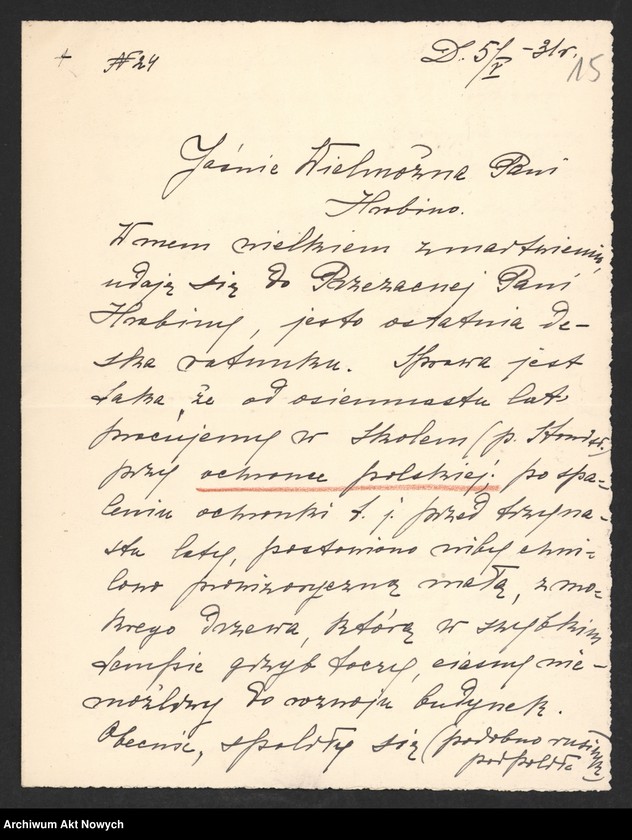 + № 24 D. 5/V - 31 r. 15
Jaśnie Wielmożna Pani
Hrabino.
W mem wielkiem zmartwieniu,
udaję się do Przezacnej Pani
Hrabiny, jesto ostatnia de-
ska ratunku. Sprawa jest
taka, że od osiemnastu lat
pracujemy w Skolem (p.
przy ochronce polskiej; po spa-
leniu ochronki t. j. przed trzyna-
stu laty, postawiono niby chwi-
lowo prowizoryczną małą, z mo-
krego drzewa, którą w szybkim
tempie grzyb toczy, ciasny nie-
możliwy do rozwoju budynek.
Obecnie, spaliły się (podobno
podpaliła
Archiwum Akt Nowych